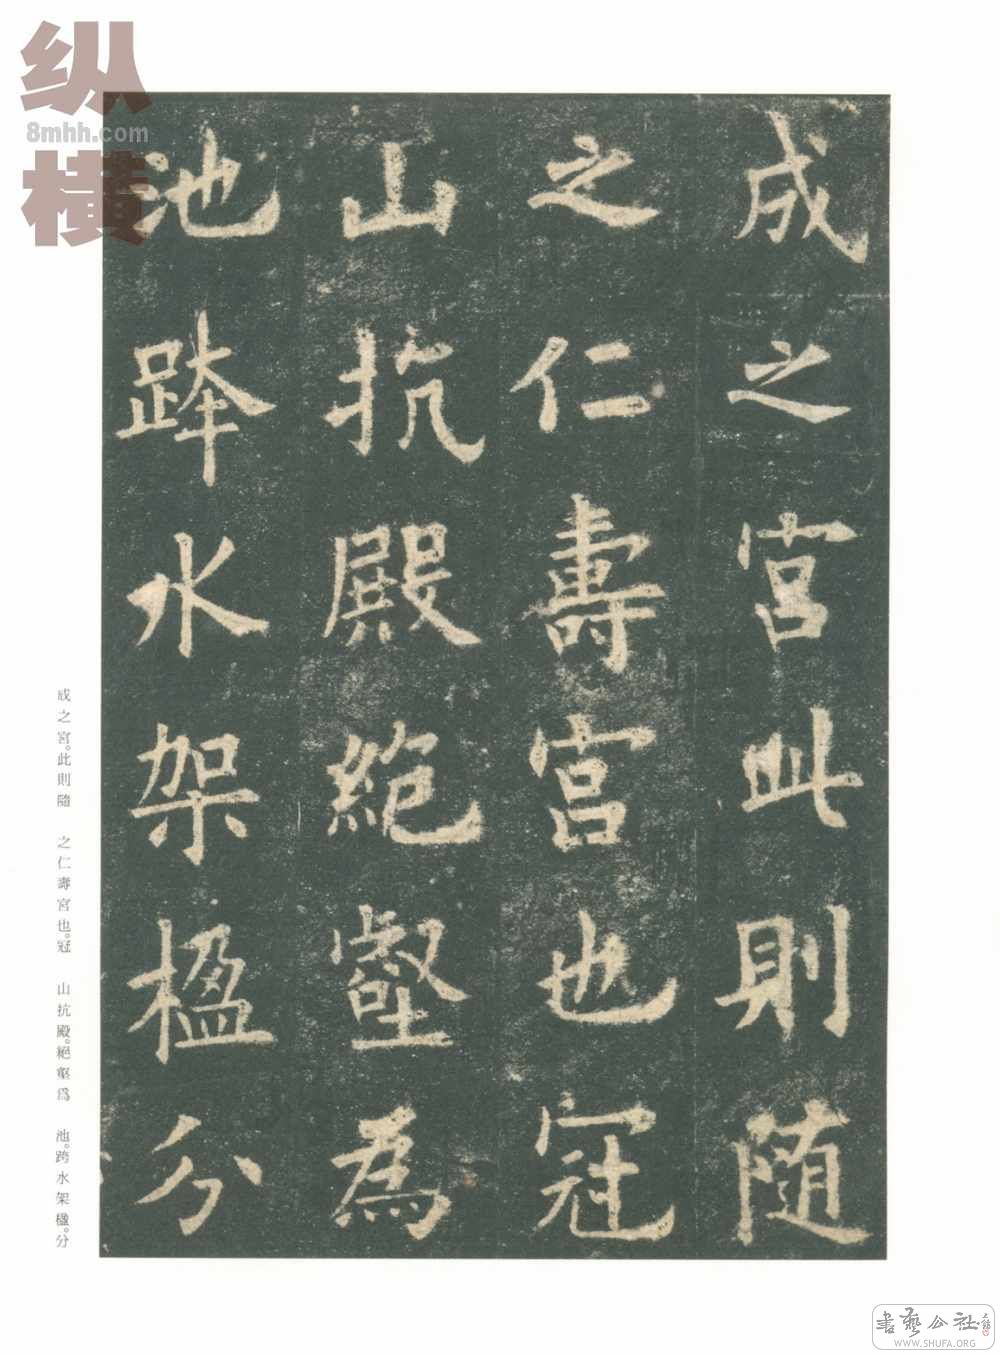 成之宮此則隨
之仁壽宮也冠
山抗殿絕壑為
池跨水架楹分
成之宮。此則隨　之仁壽宮也。冠　山抗殿。絕壑爲　池。跨水架楹。分
纵横
8mhh.com
書藝公社
WWW.SHUFA.ORG